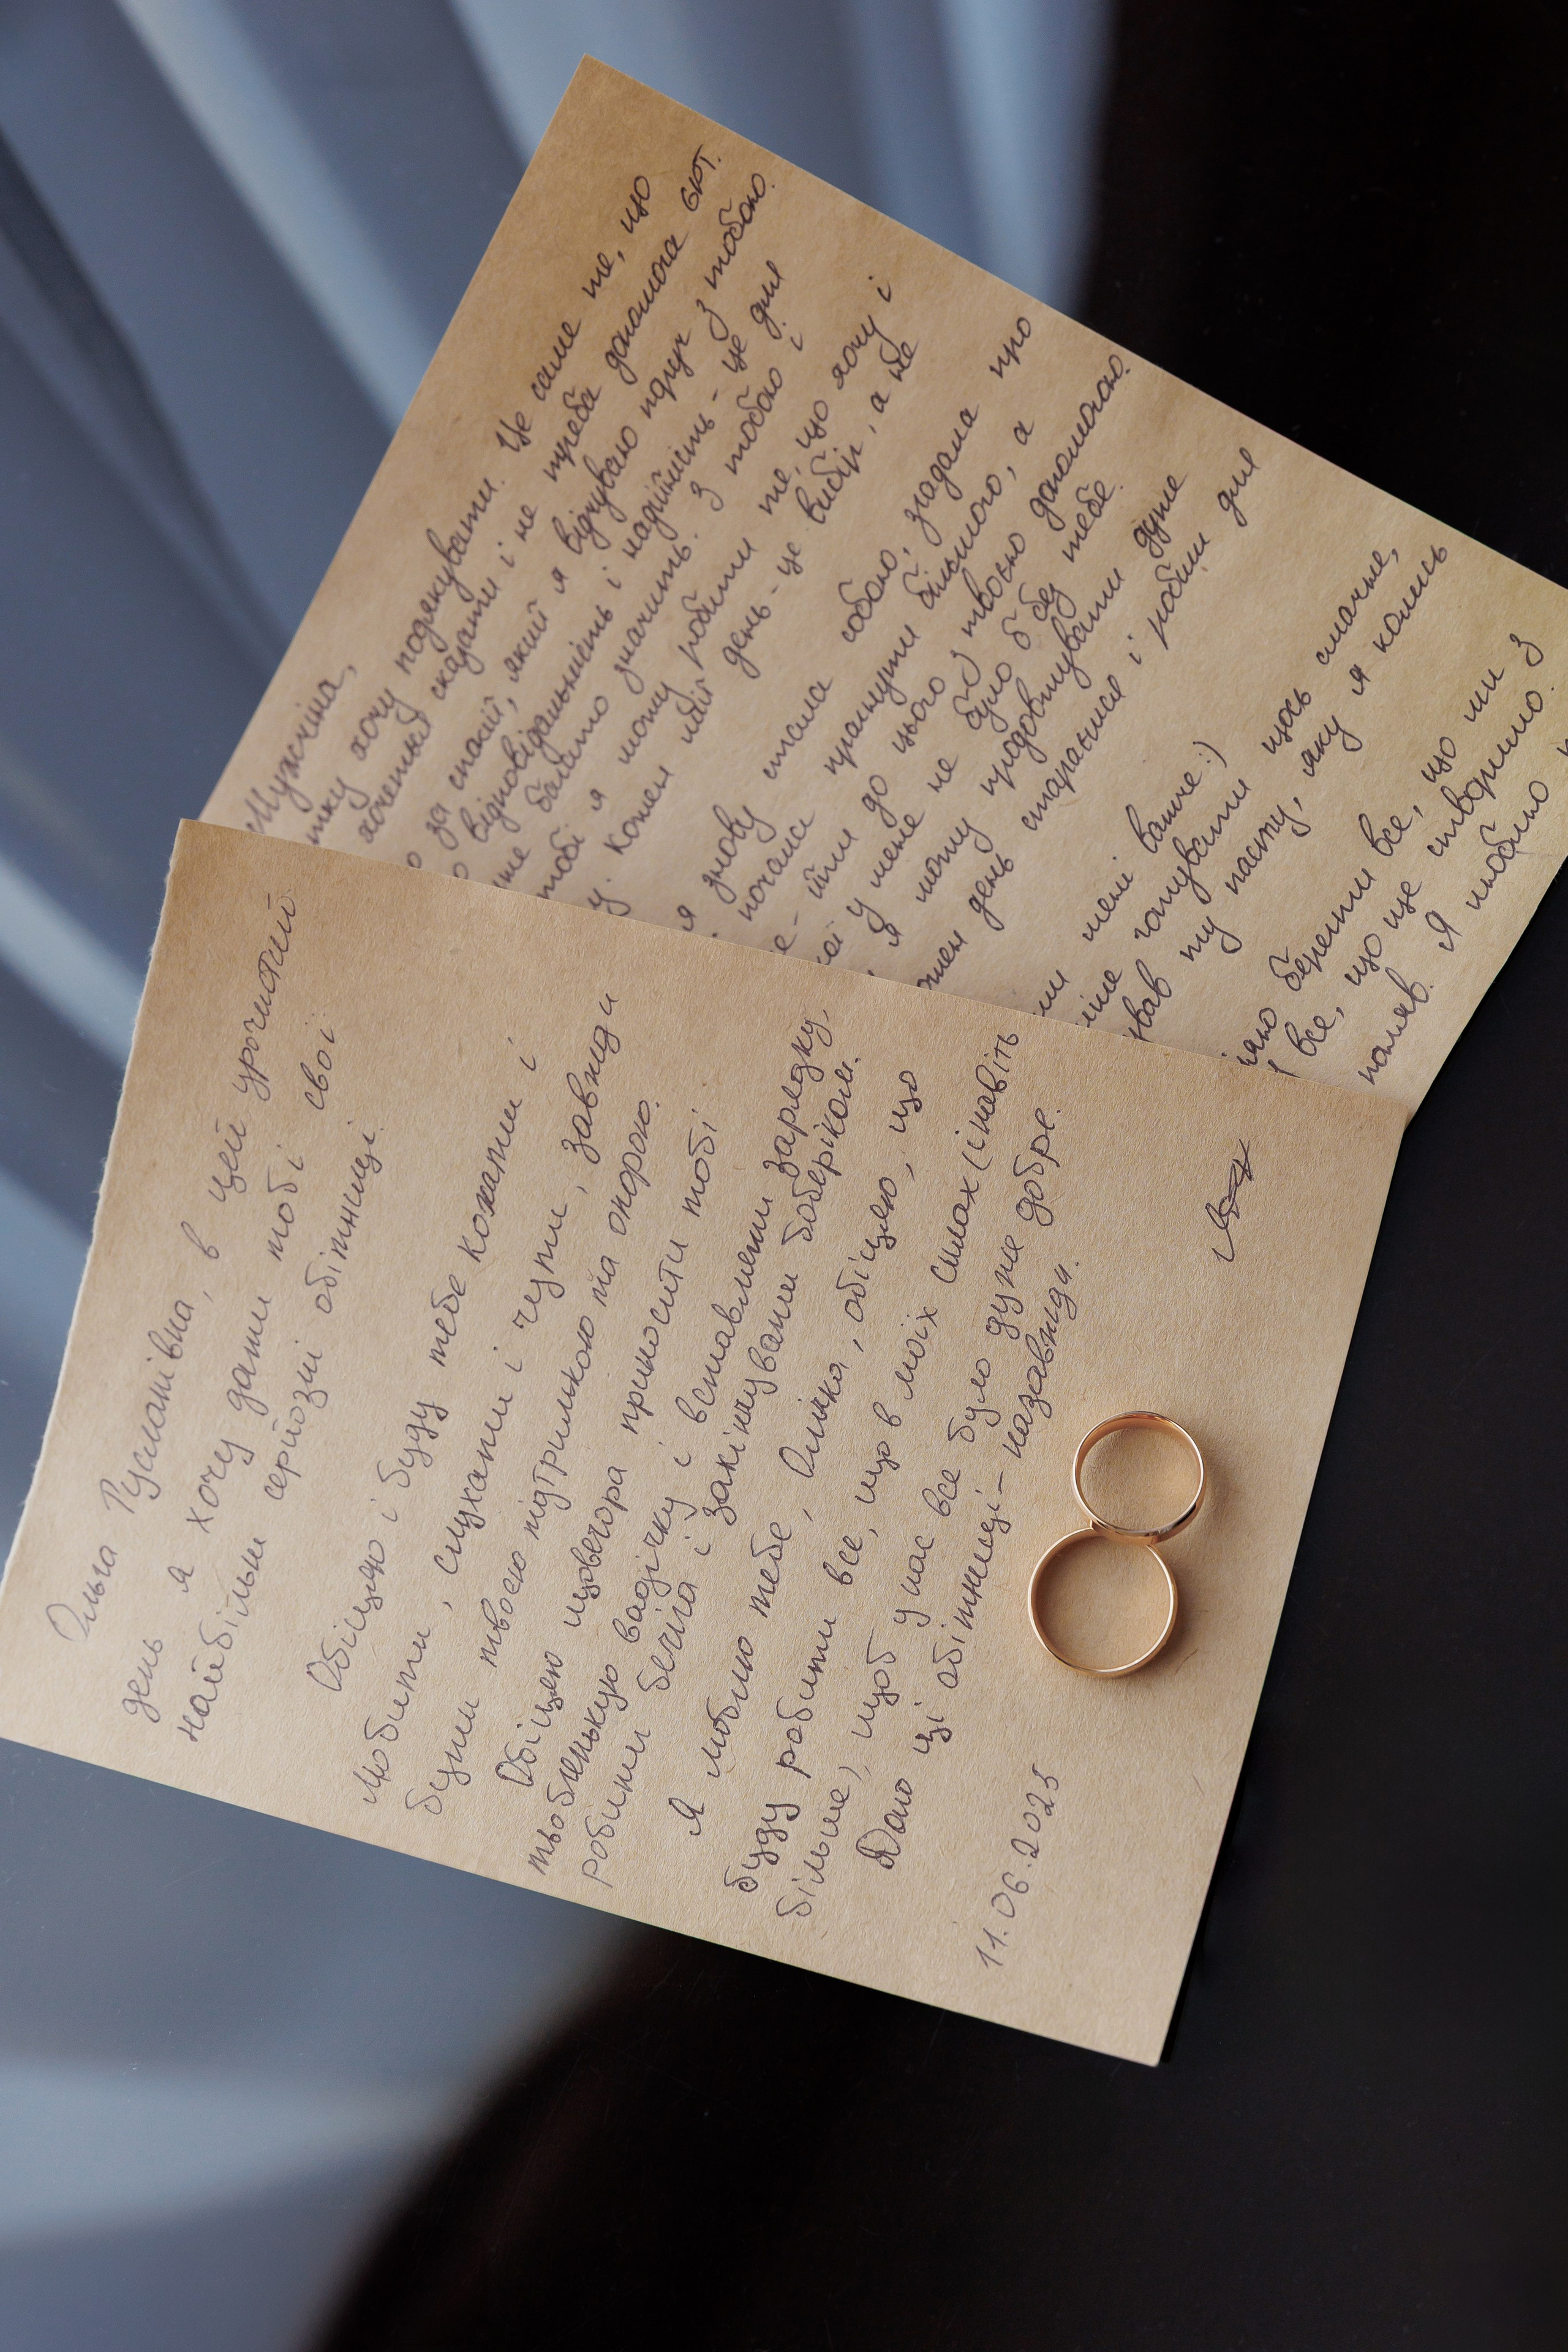 Мужчіна,
хочу подякувати. Це саме те, що
хочеться сказати і не треба допомога GPT.
за спокій, який я відчуваю поруч з тобою.
відповідальність і надійність - це для
багато значить. З тобою і
тобі я можу робити те, що хочу і
Кожен мій день - це вибір, а не
я знову стала собою, згадала про
почала прагнути більшого, а
йти до цього з твоєю допомогою.
у мене не було б без тебе.
я можу продовжувати дуже
день старатися і робити для
мені важче :)
готувати щось смачне,
ту пасту, яку я колись
берегти все, що ми з
все, що ще створимо.
Я люблю
Ольга Русланівна, в цей урочистий
день я хочу дати тобі свої
найбільш серйозні обітниці.
Обіцяю і буду тебе кохати і
любити, слухати і чути, завжди
бути твоєю підтримкою та опорою.
Обіцяю щовечора приносити тобі
твобленькую вадічку і вставляти зарядку,
робити беліла і закінчувати боберіком.
Я люблю тебе, Олічка, обіцяю, що
буду робити все, що в моїх силах (і навіть
більше), щоб у нас все було дуже добре.
Даю ці обітниці - назавжди.
11.06.2025